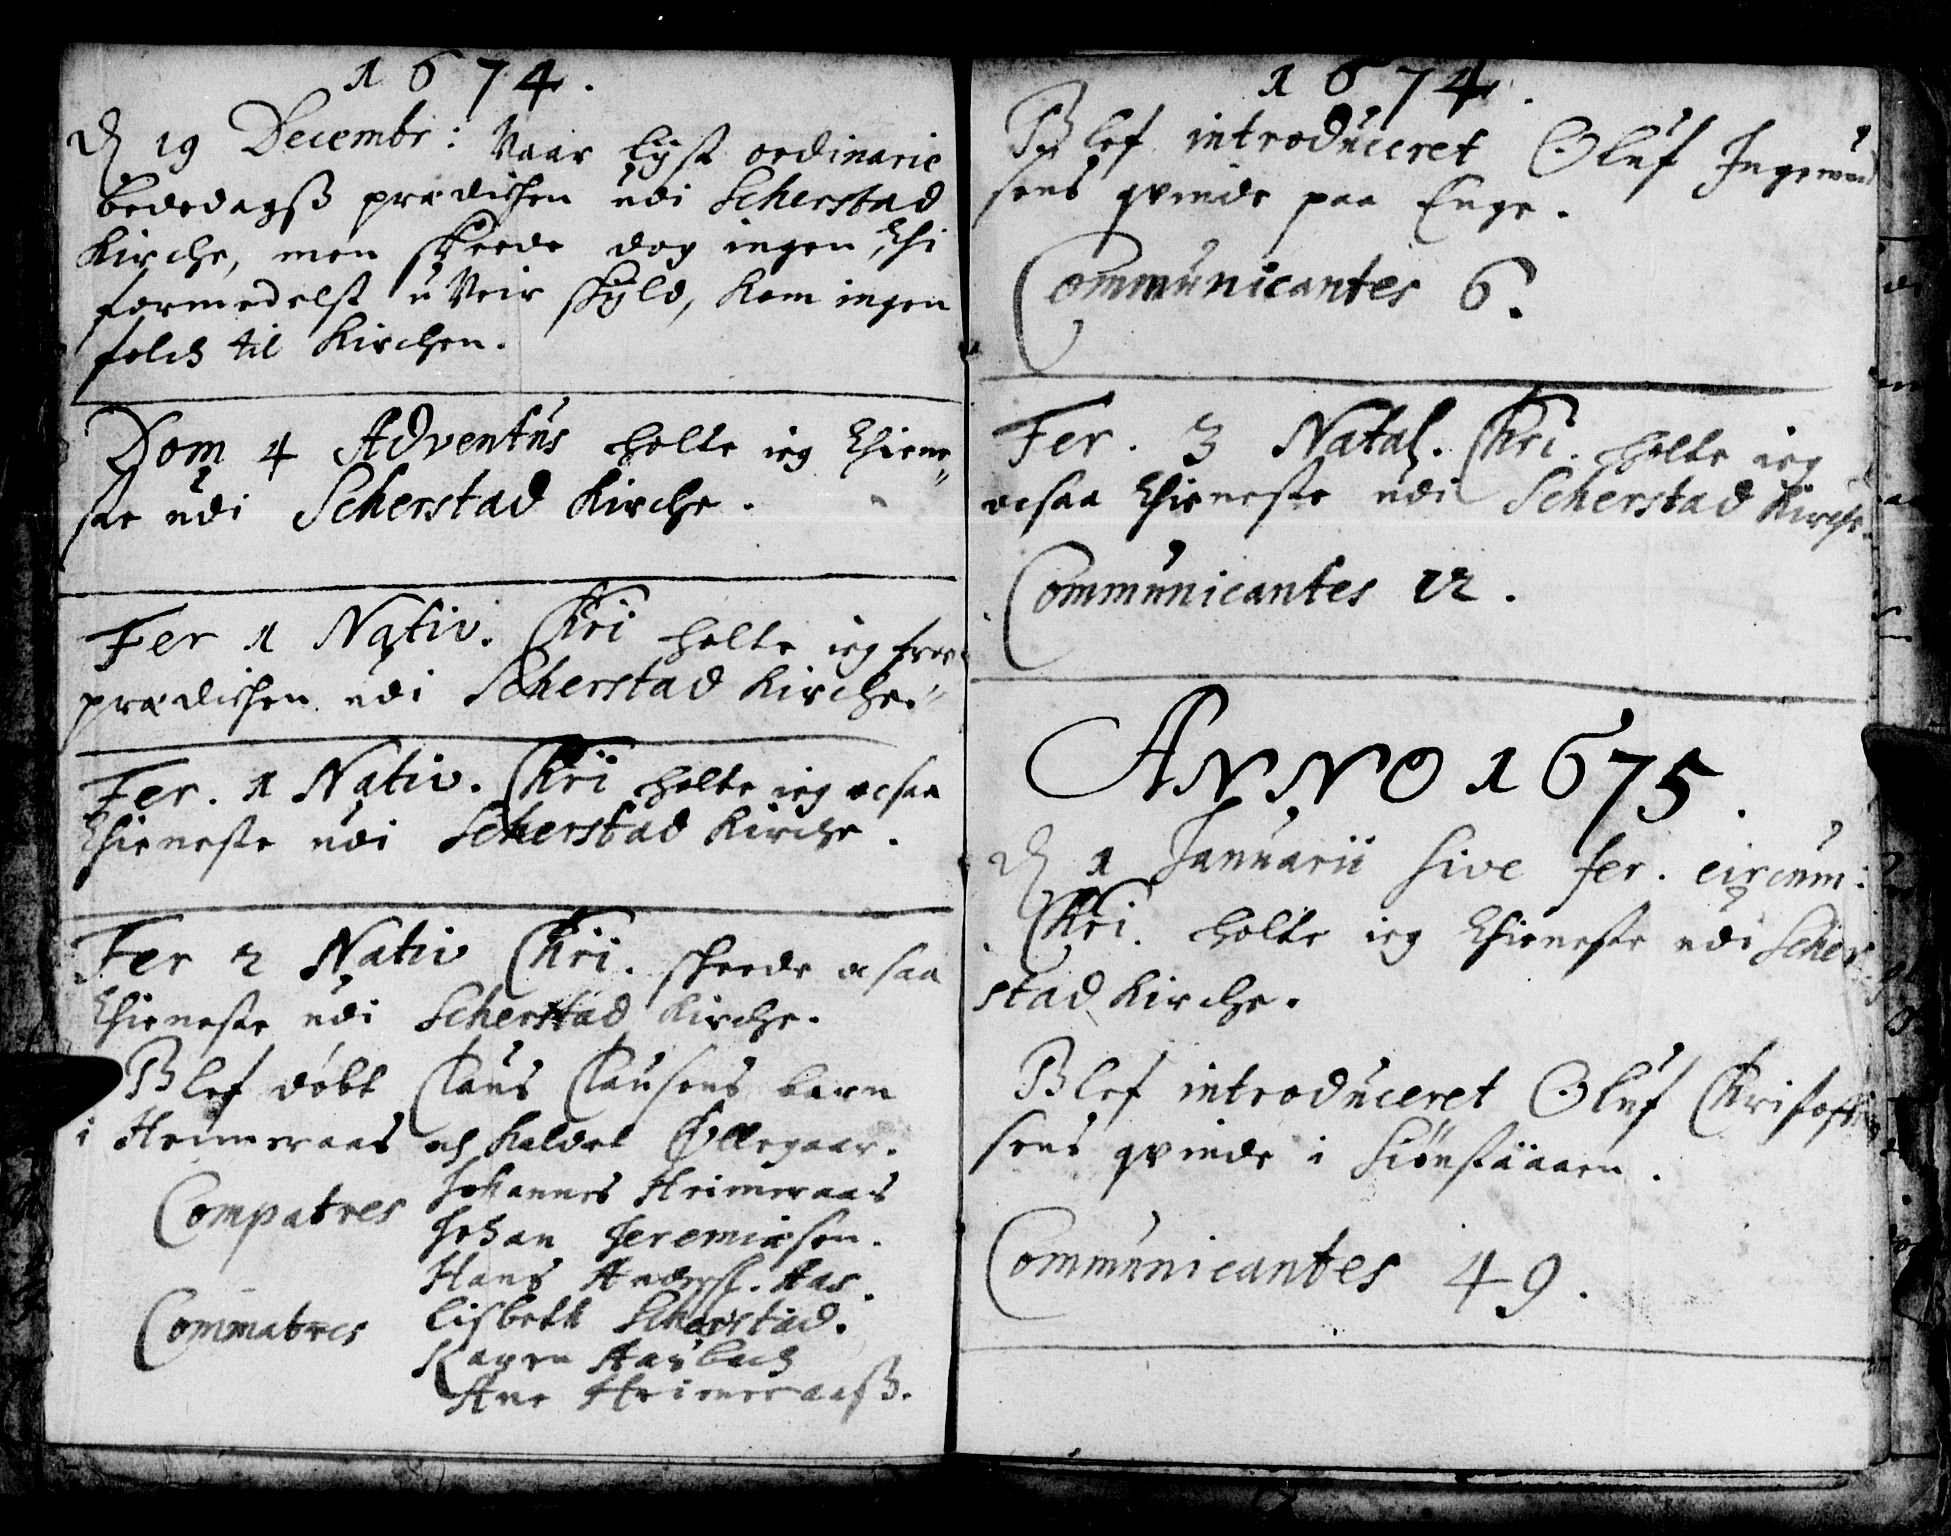 1674.
D 19 Decembr: Vaar lyst ordinarie
bededagß prædichen udi Scherstad
Kirche, men skeede dog ingen, thi
formedelst u Veir skyld, kom ingen
folch til Kirchen.
Dom 4 Adventus holte ieg thiene„
ste udi Scherstad Kirche.
Fer 1 Nativ. Chri holte ieg froe
prædichen udi Scherstad Kirche.
Fer. 1 Nativ. Chri holte ieg ocsaa
thieneste udi Scherstad Kirche.
Fer 2 Nativ Chri. scheede ocsaa
thieneste udi Scherstad Kirche.
Blef döbt Claus Clausens barn
i Heimeraas och kaldet Ollegaar.
Compatres Johannes Heimeraas
Johan Jeremiæson.
Hans Anders. Aas.
Commatres Lisbett Scherstad.
Karen
Ane Heimeraaß.
1674.
Blef introduceret Oluf Ingemund
sens qvinde paa Enge.
Communicantes 6.
Fer. 3 Natal. Chri. holte ieg
ocsaa thieneste udi Scherstad Kirche.
Communicantes 12.
ANNO 1675.
D 1 Januarii sive fer. circum:
Chri. holte ieg thieneste udi Scher
stad Kirche.
Blef introduceret Oluf Christoff
sens qvinde i
Communicantes 49.